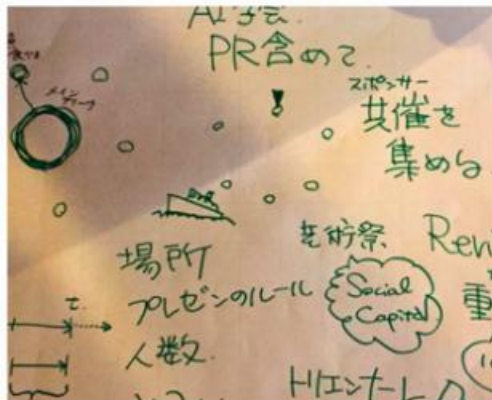 AI学会
PR含めて
スポンサー
共催を
集める
メイン
芸術祭
Ren
場所
プレゼンのルール
Social
Capital
重
τ
人数
トリエンナーレ